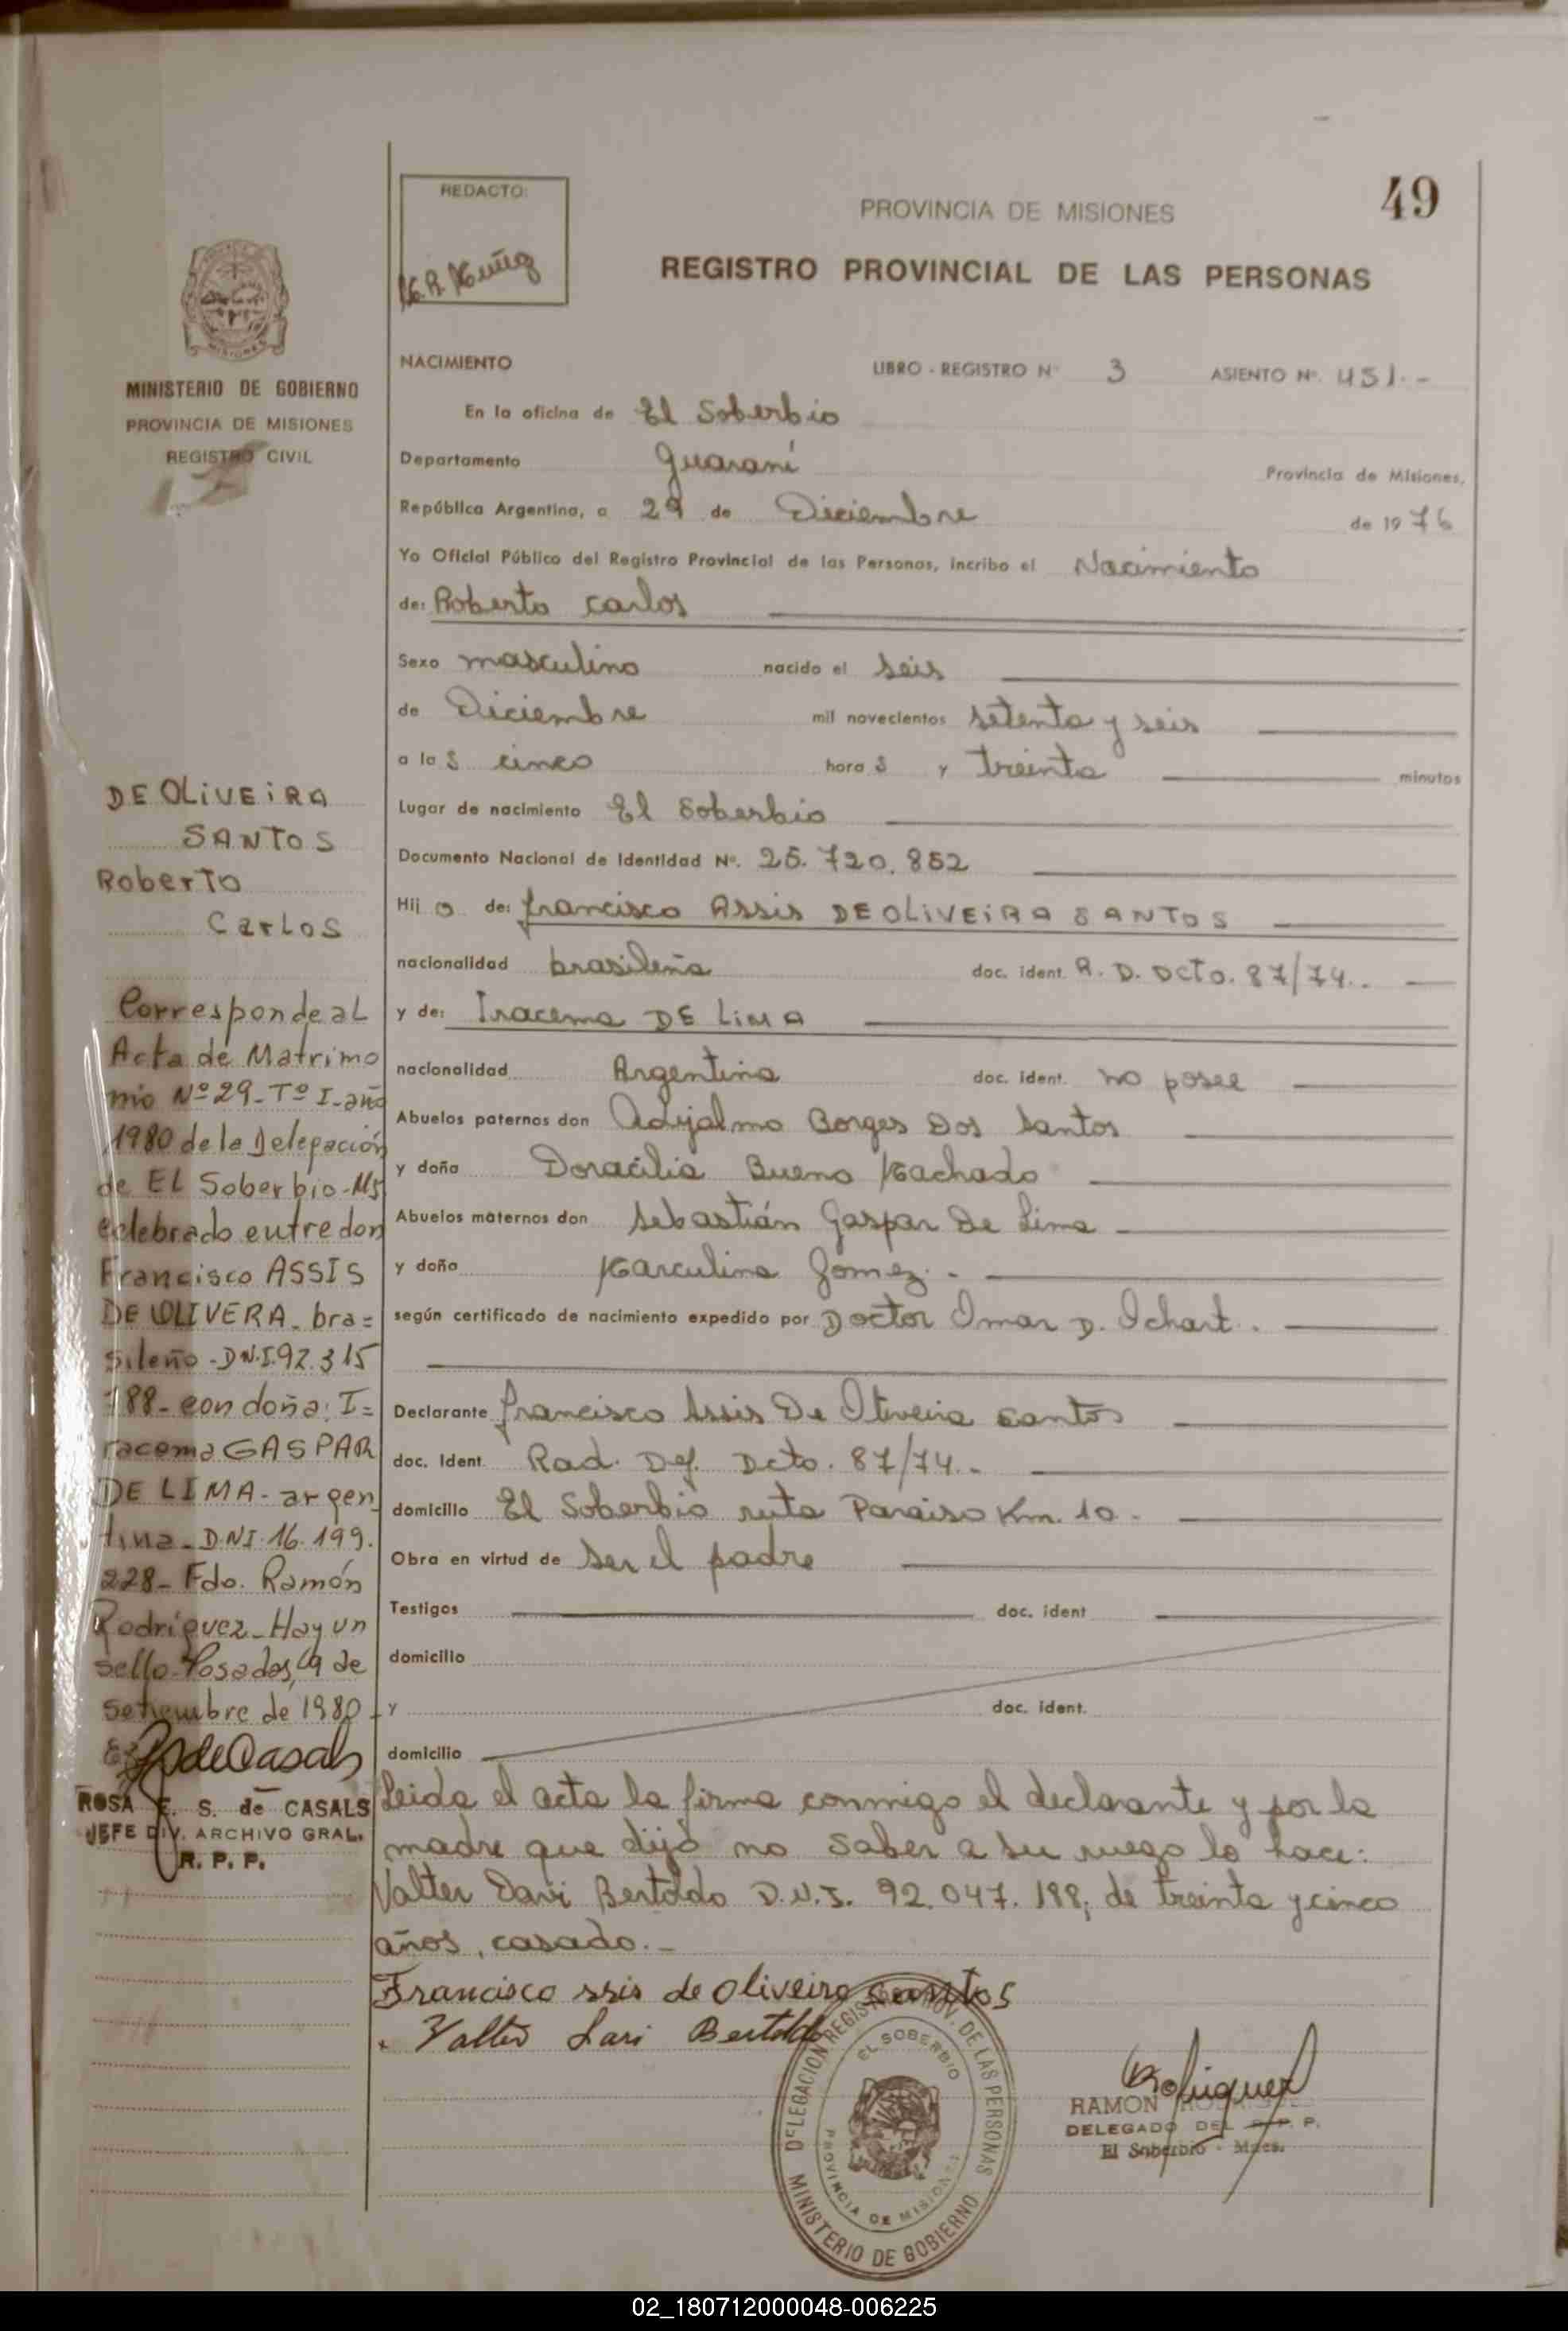 49
REDACTO:
PROVINCIA DE MISIONES
REGISTRO PROVINCIAL DE LAS PERSONAS
MISIONES
MINISTERIO DE GOBIERNO
PROVINCIA DE MISIONES
REGISTRO CIVIL
NACIMIENTO LIBRO - REGISTRO Nº 3 ASIENTO Nº. 451.-
En la oficina de El Soberbio
Departamento Guaraní Provincia de Misiones,
República Argentina, a 29 de Diciembre de 1976
Yo Oficial Público del Registro Provincial de las Personas, incribo el Nacimiento
de: Roberto Carlos
Sexo masculino nacido el seis
de Diciembre mil novecientos setenta y seis
a las cinco horas y treinta minutos
Lugar de nacimiento El Soberbio
Documento Nacional de Identidad Nº. 25.720.852
Hijo de: Francisco Assis DE OLiVEiRA SANTOS
nacionalidad brasileña doc. ident. R. D. Dcto. 87/74..
y de: Iracema DE LiMA
nacionalidad Argentina doc. ident. no posee
Abuelos paternos don Adijalmo Borges Dos Santos
y doña Doracilia Bueno Machado
Abuelos maternos don Sebastián Gaspar De Lima
y doña Marculina Gómez.-
según certificado de nacimiento expedido por Doctor Omar D. Ichart.
Declarante Francisco Assis De Oliveira Santos
doc. ident. Rad. Def. Dcto. 87/74.-
domicilio El Soberbio ruta Paraiso Km. 10.-
Obra en virtud de ser el padre
Testigos doc. ident
domicilio
y doc. ident.
domicilio
Leida el acta la firma conmigo el declarante y por la
madre que dijo no saber a su ruego lo hace:
Valter Davi Bertoldo D.N.I. 92.047.188, de treinta y cinco
años, casado.-
Francisco ssis de oliveira santos
Valter Bertoldo
DE OLiVEiRA
SANTOS
Roberto
Carlos
Corresponde al
Acta de Matrimo
nio Nº 29-Tº I-año
1980 de la Delegación
de EL Soberbio-Ms
celebrado entre don
Francisco ASSIS
DE OLIVERA-bra=
sileño-DN.I.92.315
188-con doña: I=
racema GASPAR
DE LIMA-argen
tina-DNI-16.199.
228-Fdo. Ramón
Rodríguez-Hay un
sello-Posadas, 19 de
setiembre de 1980-
de Casals
ROSA E. S. de CASALS
JEFE DIV. ARCHIVO GRAL.
R. P. P.
DELEGACION REGISTRO PROV. DE LAS PERSONAS
EL SOBERBIO
PROVINCIA DE MISIONES
MINISTERIO DE GOBIERNO
Rodriguez
RAMON RODRIGUEZ
DELEGADO DEL R. P. P.
El Soberbio - Mnes.
02_180712000048-006225